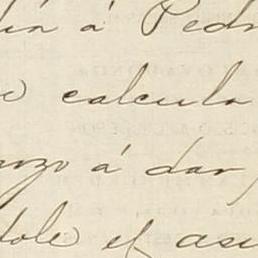 á Pedr
calcula
á dar
dole el asu